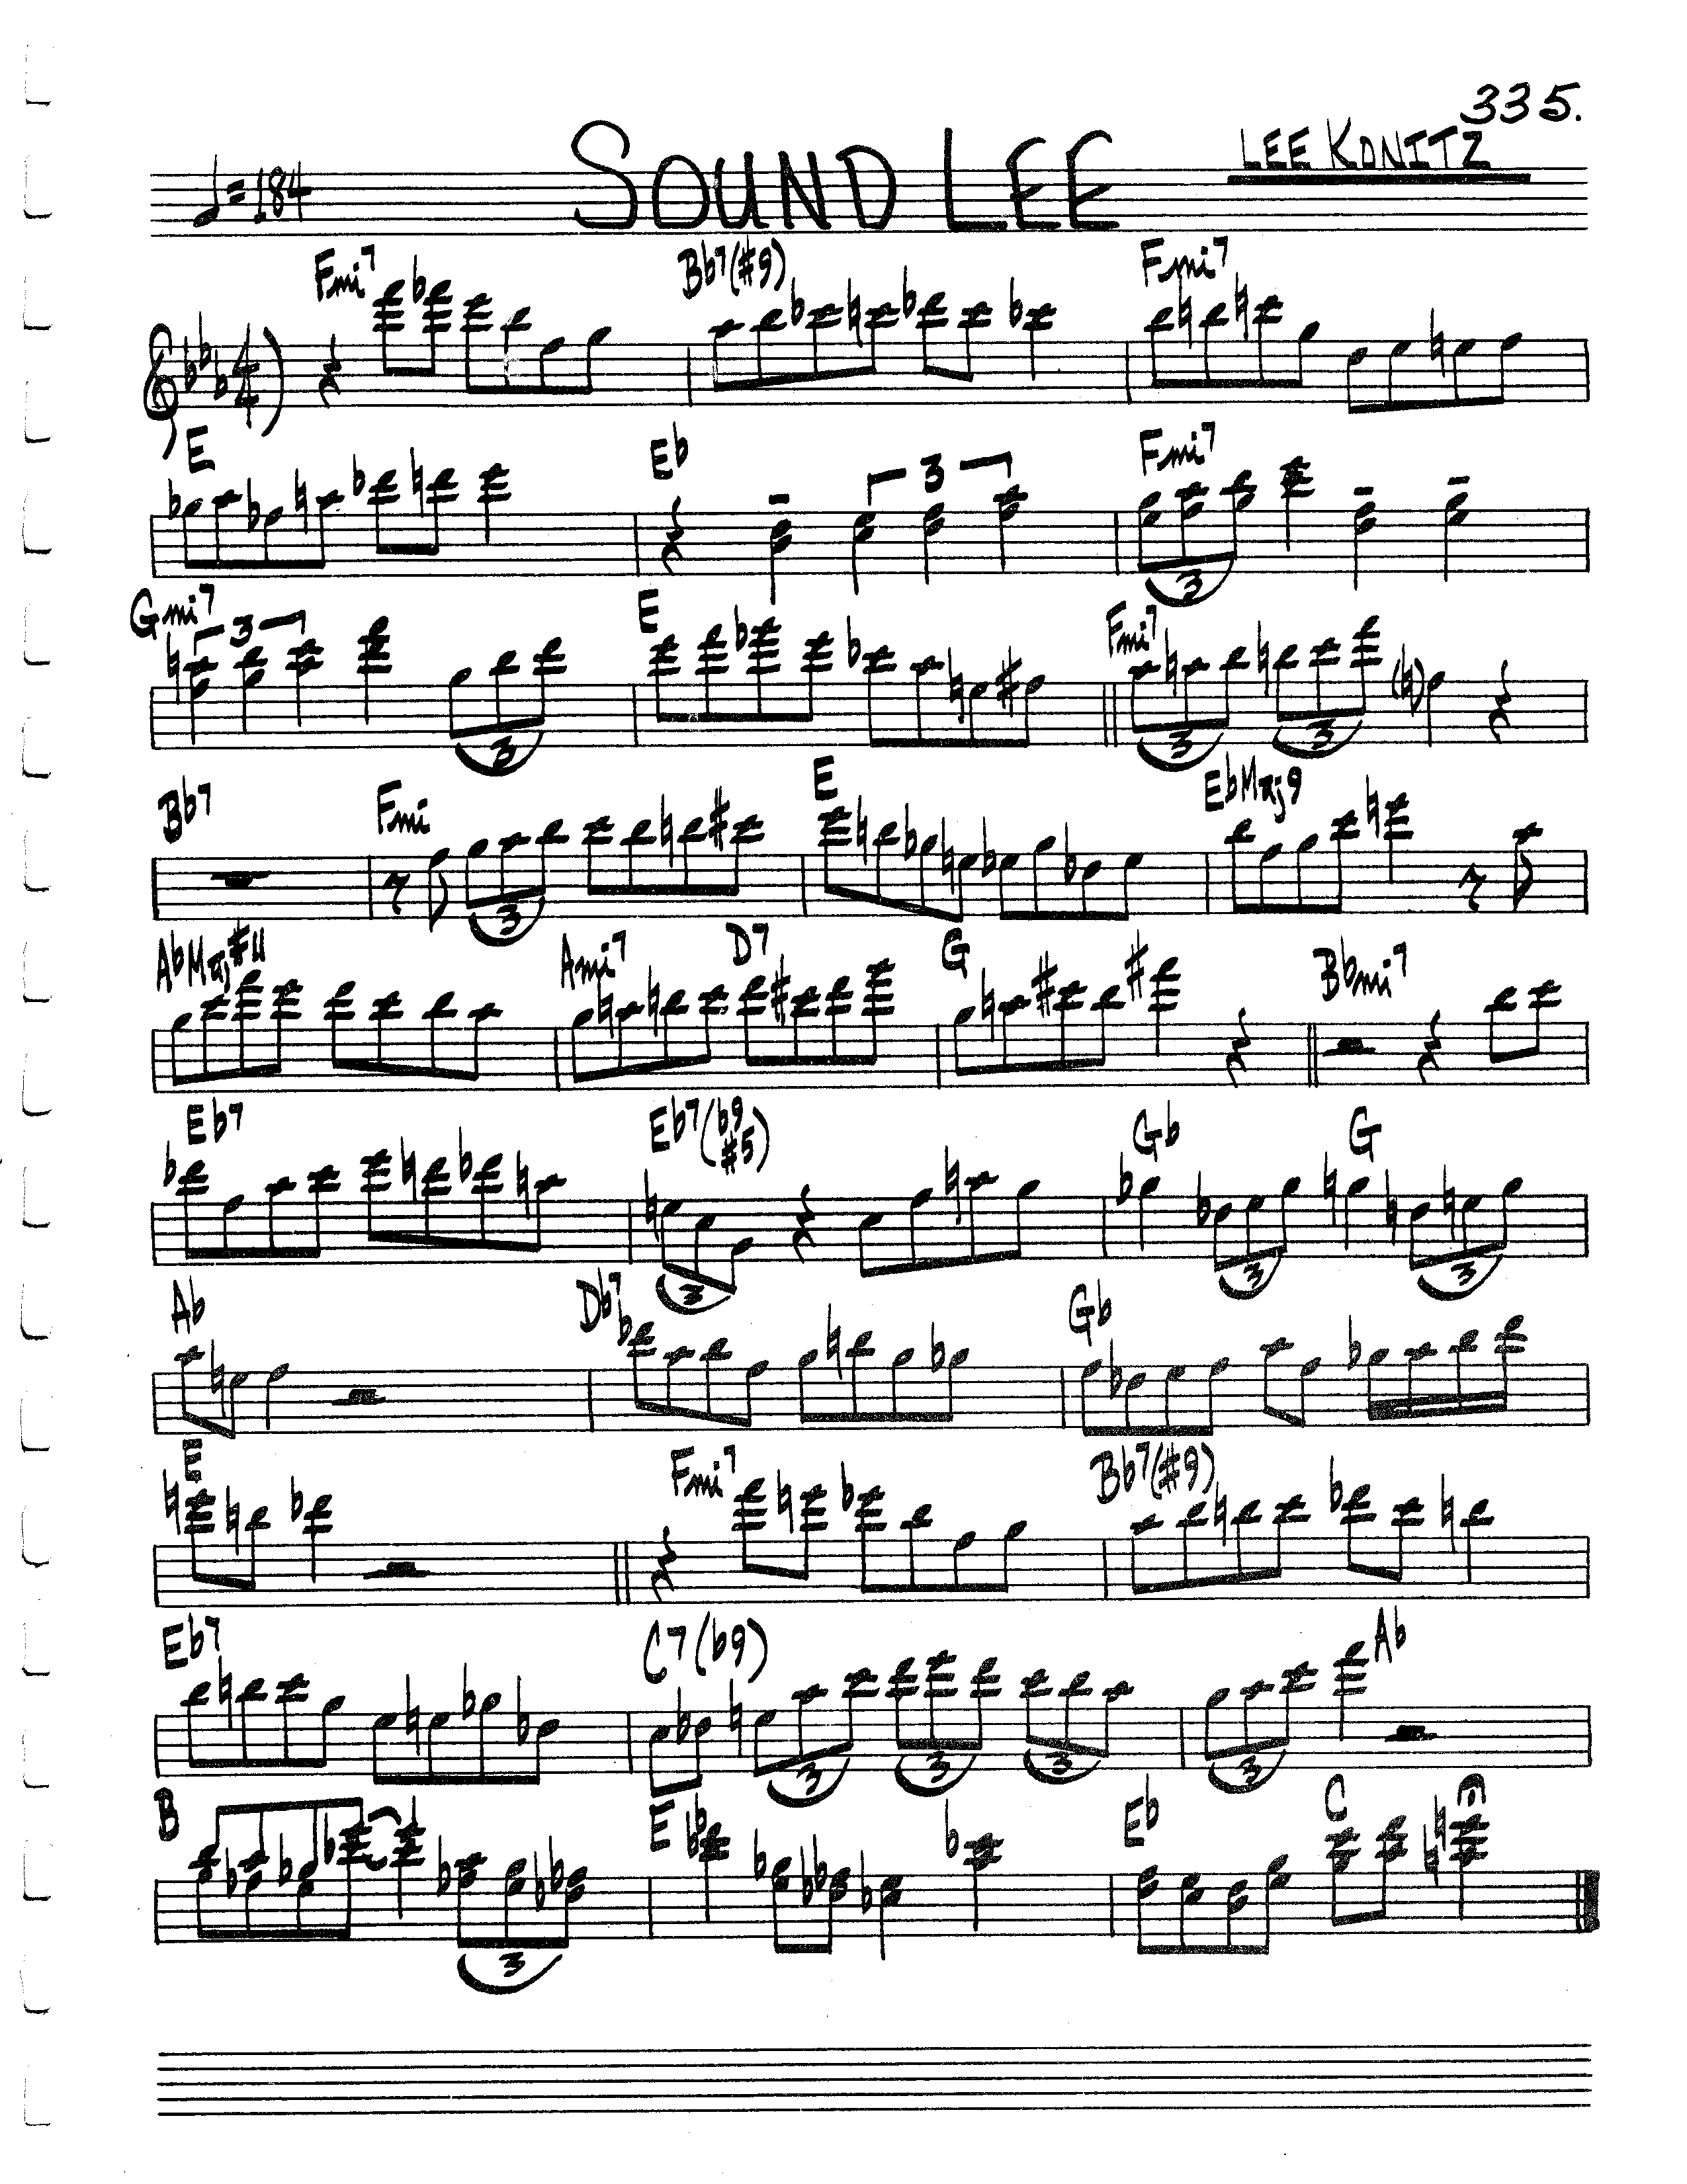 335.
♩=184 SOUND LEE LEE KONITZ
Fmi7 Bb7(#9) Fmi7
4/4
E Eb 3 Fmi7
3
Gmi7 3 E Fmi7
3 3 3
Bb7 Fmi E EbMaj9
3
AbMaj#11 Ami7 D7 G Bbmi7
Eb7 Eb7(b9 #5) Gb G
3 3 3
Ab Db7 Gb
E Fmi7 Bb7(#9)
Eb7 C7(b9) Ab
3 3 3 3
B E Eb C
3